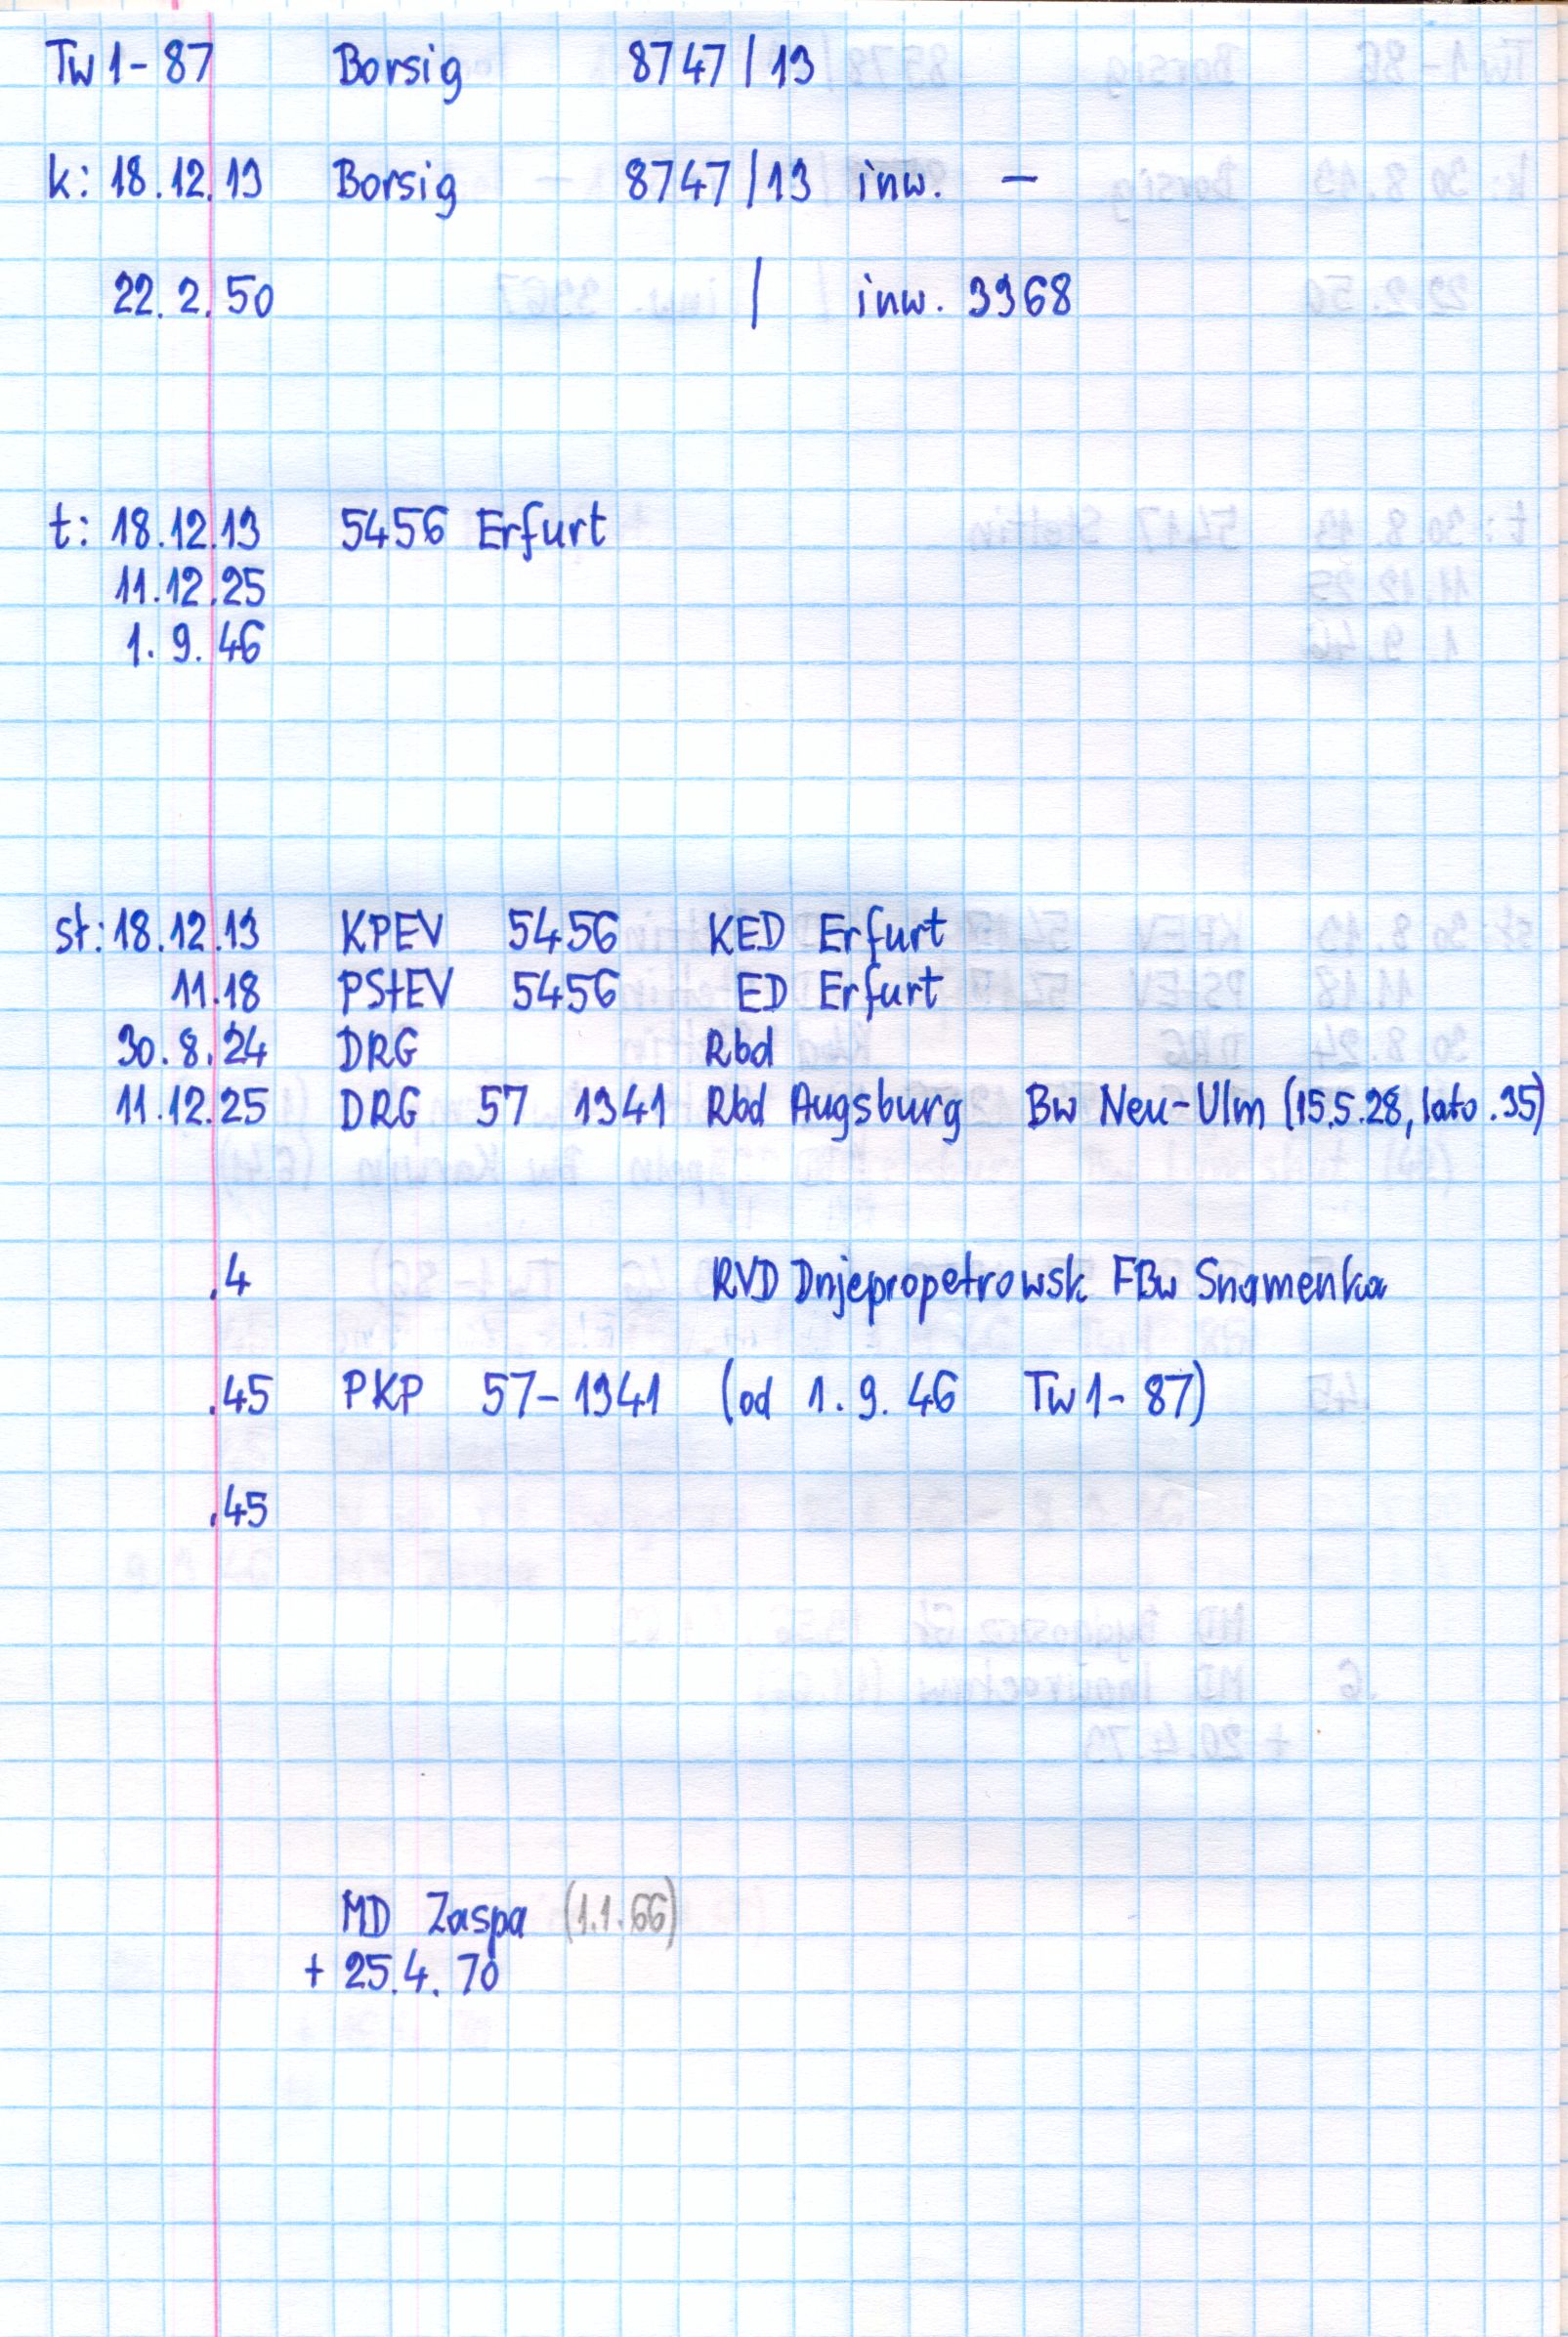 Tw 1-87 Borsig 8747/13
k: 18.12.13 Borsig 8747/13 inw. –
22.2.50 / inw. 3968
t: 18.12.13 5456 Erfurt
11.12.25
1.9.46
st: 18.12.13 KPEV 5456 KED Erfurt
11.18 PStEV 5456 ED Erfurt
30.8.24 DRG Rbd
11.12.25 DRG 57 1941 Rbd Augsburg Bw Neu-Ulm (15.5.28, lato .35)
.4 RVD Dnjepropetrowsk FBw Snamenka
.45 PKP 57-1941 (od 1.9.46 Tw 1-87)
.45
MD Zaspa (1.1.66)
+ 25.4.70